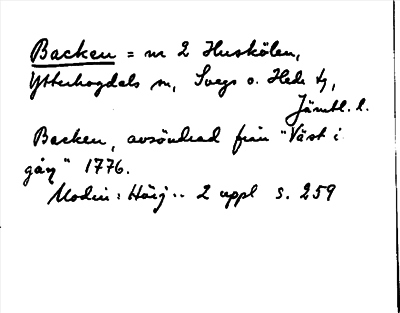 Backen = nr 2 Huskölen,
Ytterhogdals sn, Svegs o. Hede tg,
Jämtl. l.
Backen, avsöndrad från "Väst i
gån" 1776.
Modin: Härj.. 2 uppl s. 259